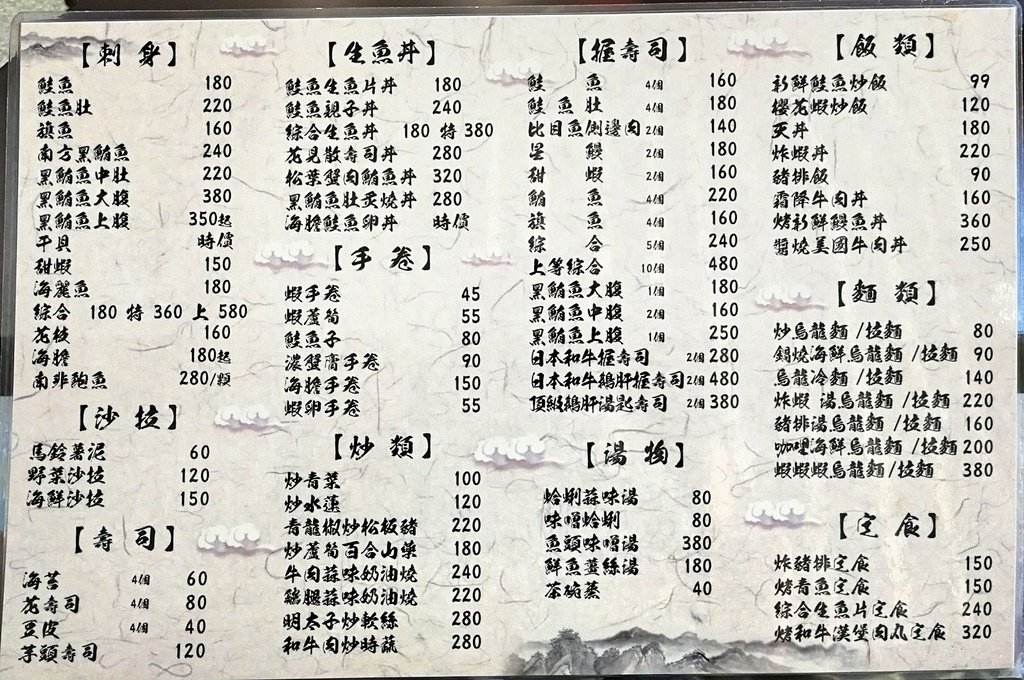 【刺身】
鮭魚 180
鮭魚肚 220
旗魚 160
南方黑鮪魚 240
黑鮪魚中肚 220
黑鮪魚大腹 380
黑鮪魚上腹 350起
干貝 時價
甜蝦 150
海鱺魚 180
綜合 180 特 360 上 580
花枝 160
海膽 180起
南非鮑魚 280/顆
【沙拉】
馬鈴薯泥 60
野菜沙拉 120
海鮮沙拉 150
【壽司】
海苔 4個 60
花壽司 4個 80
豆皮 4個 40
芋頭壽司 120
【生魚丼】
鮭魚生魚片丼 180
鮭魚親子丼 240
綜合生魚丼 180 特 380
花見散壽司丼 280
松葉蟹肉鮪魚丼 320
黑鮪魚肚炙燒丼 280
海膽鮭魚卵丼 時價
【手卷】
蝦手卷 45
蝦蘆筍 55
鮭魚子 80
濃蟹膏手卷 90
海膽手卷 150
蝦卵手卷 55
【炒類】
炒青菜 100
炒水蓮 120
青龍椒炒松板豬 220
炒蘆筍百合山藥 180
牛肉蒜味奶油燒 240
雞腿蒜味奶油燒 220
明太子炒軟絲 280
和牛肉炒時蔬 280
【握壽司】
鮭魚 4個 160
鮭魚肚 4個 180
比目魚側邊肉 2個 140
星鰻 2個 180
甜蝦 2個 160
鮪魚 4個 220
旗魚 4個 160
綜合 5個 240
上等綜合 10個 480
黑鮪魚大腹 1個 180
黑鮪魚中腹 2個 160
黑鮪魚上腹 1個 250
日本和牛握壽司 2個 280
日本和牛鵝肝握壽司 2個 480
頂級鵝肝湯匙壽司 2個 380
【湯物】
蛤蜊蒜味湯 80
味噌蛤蜊 80
魚頭味噌湯 380
鮮魚薑絲湯 180
茶碗蒸 40
【飯類】
新鮮鮭魚炒飯 99
櫻花蝦炒飯 120
天丼 180
炸蝦丼 220
豬排飯 90
霜降牛肉丼 160
烤新鮮鰻魚丼 360
醬燒美國牛肉丼 250
【麵類】
炒烏龍麵/拉麵 80
鍋燒海鮮烏龍麵/拉麵 90
烏龍冷麵/拉麵 140
炸蝦 湯烏龍麵/拉麵 220
豬排湯烏龍麵/拉麵 160
咖哩海鮮烏龍麵/拉麵 200
蝦蝦蝦烏龍麵/拉麵 380
【定食】
炸豬排定食 150
烤青魚定食 150
綜合生魚片定食 240
烤和牛漢堡肉丸定食 320